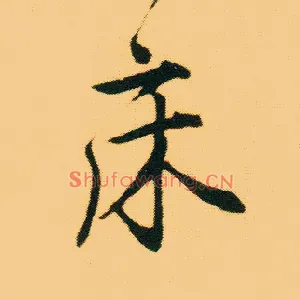 床
Shufawang.CN